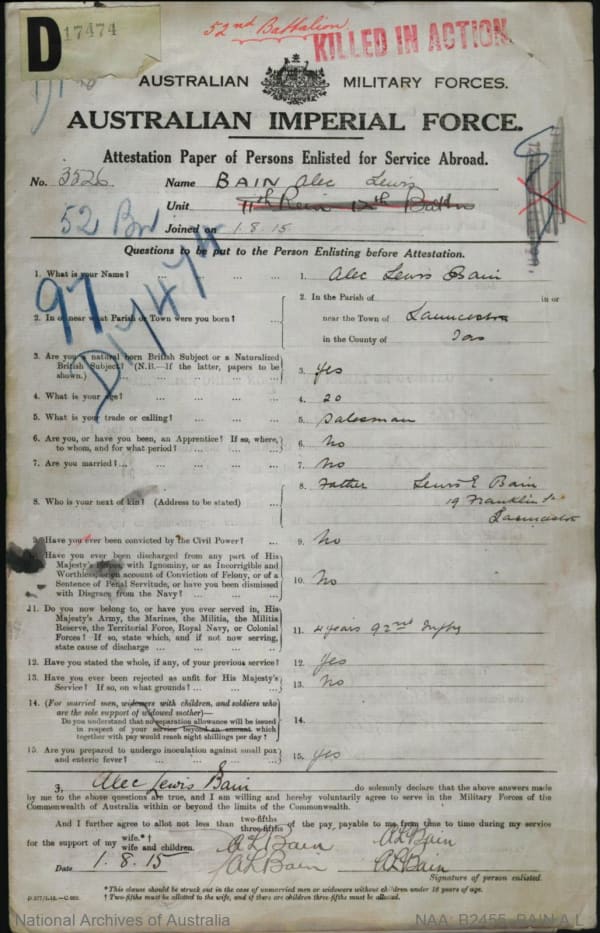 D 17474
52nd Battalion
KILLED IN ACTION.
AUSTRALIAN MILITARY FORCES.
AUSTRALIAN IMPERIAL FORCE.
Attestation Paper of Persons Enlisted for Service Abroad.
No. 3526 Name BAIN Alec Lewis
Unit 11th Rein 12th Battn
52 Bn
Joined on 1.8.15
Questions to be put to the Person Enlisting before Attestation.
97
D17474
1. What is your Name? ... ... ... 1. Alec Lewis Bain
2. In or near what Parish or Town were you born? ... 2. In the Parish of in or
near the Town of Launceston
in the County of Tas
3. Are you a natural born British Subject or a Naturalized
British Subject? (N.B.—If the latter, papers to be
shown.) ... ... ... ... 3. Yes
4. What is your age? ... ... ... 4. 20
5. What is your trade or calling? ... ... ... 5. Salesman
6. Are you, or have you been, an Apprentice? If so, where,
to whom, and for what period? ... ... ... 6. No
7. Are you married? ... ... ... ... 7. No
8. Who is your next of kin? (Address to be stated) ... 8. Father Lewis E Bain
19 Franklin St
Launceston
9. Have you ever been convicted by the Civil Power? ... 9. No
Have you ever been discharged from any part of His
Majesty's with Ignominy, or as Incorrigible and
Worthless, or on account of Conviction of Felony, or of a
Sentence of Penal Servitude, or have you been dismissed
with Disgrace from the Navy? ... ... ... 10. No
11. Do you now belong to, or have you ever served in, His
Majesty's Army, the Marines, the Militia, the Militia
Reserve, the Territorial Force, Royal Navy, or Colonial
Forces? If so, state which, and if not now serving,
state cause of discharge ... ... ... 11. 4 years 92nd Inftry
12. Have you stated the whole, if any, of your previous service? 12. Yes
13. Have you ever been rejected as unfit for His Majesty's
Service? If so, on what grounds? ... ... 13. No
14. (For married men, widowers with children, and soldiers who
are the sole support of widowed mother)—
Do you understand that no separation allowance will be issued
in respect of your service beyond an amount which
together with pay would reach eight shillings per day? 14.
15. Are you prepared to undergo inoculation against small pox
and enteric fever? ... ... ... ... 15. Yes
I, Alec Lewis Bain do solemnly declare that the above answers made
by me to the above questions are true, and I am willing and hereby voluntarily agree to serve in the Military Forces of the
Commonwealth of Australia within or beyond the limits of the Commonwealth.
And I further agree to allot not less than two-fifths three-fifths of the pay payable to me from time to time during my service
for the support of my wife.*† wife and children. A L Bain A L Bain
Date 1.8.15 A L Bain A L Bain
Signature of person enlisted.
*This clause should be struck out in the case of unmarried men or widowers without children under 18 years of age.
† Two-fifths must be allotted to the wife, and if there are children three-fifths must be allotted.
National Archives of Australia NAA: B2455, BAIN A L